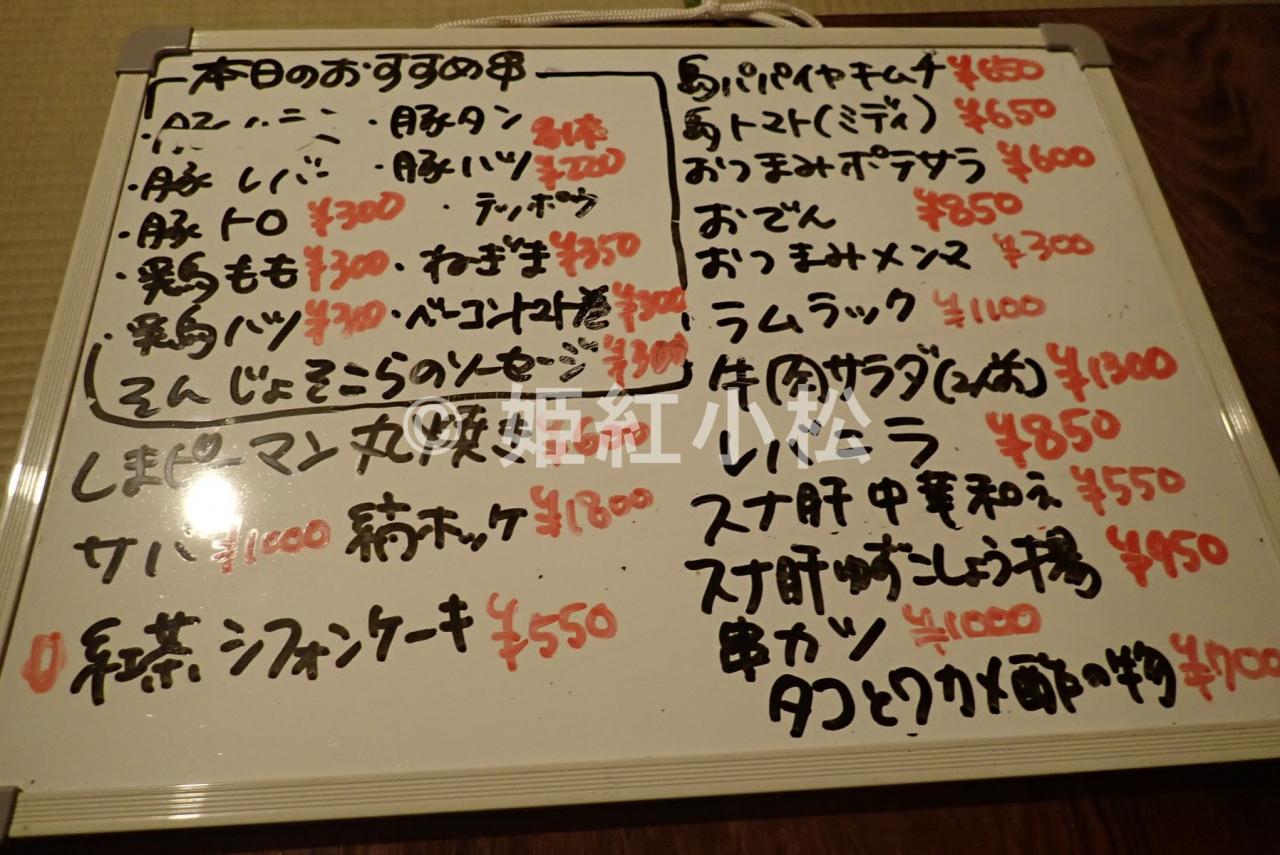 本日のおすすめ串
・豚タン 各1本
・豚レバー ・豚ハツ ¥220
・豚トロ ¥300 ・テッポウ
・鶏もも ¥300 ・ねぎま ¥350
・鶏ハツ ・ベーコントマト巻 ¥300
そんじょそこらのソーセージ ¥300
しまピーマン丸焼き
サバ ¥1000 縞ホッケ ¥1800
紅茶シフォンケーキ ¥550
島パパイヤキムチ ¥650
島トマト(ミディ) ¥650
おつまみポテサラ ¥600
おでん ¥850
おつまみメンマ ¥300
ラムラック ¥1100
牛肉サラダ(2人前) ¥1300
レバニラ ¥850
スナ肝中華和え ¥550
スナ肝ゆずこしょう揚 ¥950
串カツ ¥1000
タコとワカメ酢の物 ¥700
© 姫紅小松